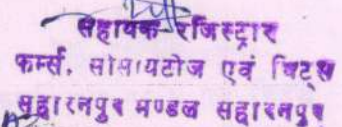 सहायक रजिस्ट्रार
फर्म्स, सोसायटीज एवं चिट्स
सहारनपुर मण्डल सहारनपुर